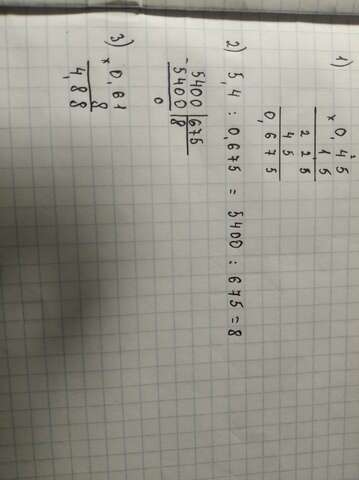 1)
× 0,45
1 5
2 2 5
4 5
0,6 7 5
2) 5,4 : 0,675 = 5400 : 675 = 8
5400 | 675
- 5400 | 8
0
3)
× 0,61
8
4,88